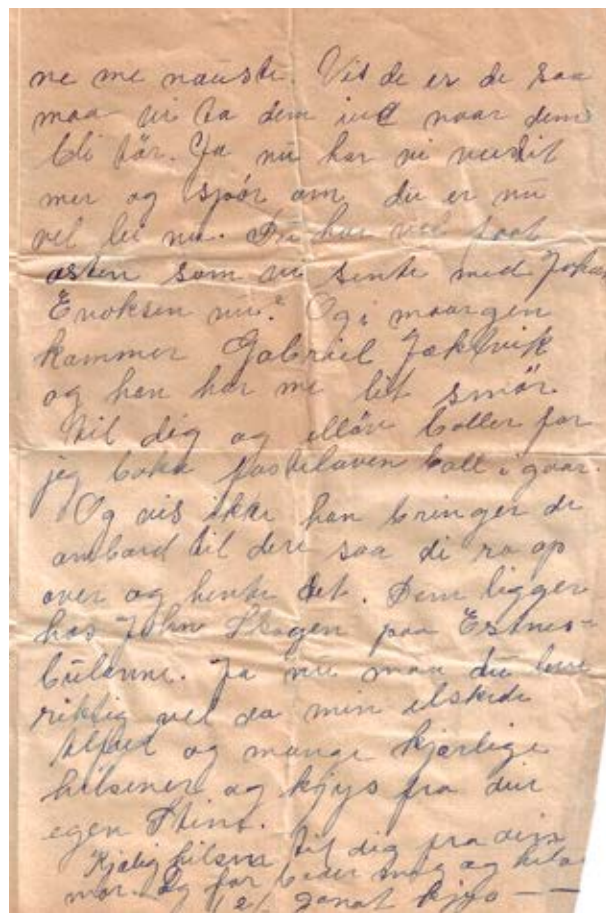 ne me nauste. Vis de er de saa
maa vi ta dem ind naar dem
bli tör. Ja nu har vi
mer og spör om du er nu
vel nu. Du har vel faat
osten som vi sente med Johan
Enoksen nu? Og i maargen
kommer Gabriel Jækthvik
og han har me lit smör
til dig og elløv boller for
jeg boka fastelaven boll i gaar.
Og vis ikke han bringer de
ombord til dere saa di ro op
over og hente det. Dem ligger
hos John Skogen paa Estnes=
bülanne. Ja nu maa du leve
riktig vel da min elskede
og mange kjærlige
hilsener og kjys fra din
egen Stina.
Kjælig hilsen til dig fra din
mor. og far beder mig og hilse